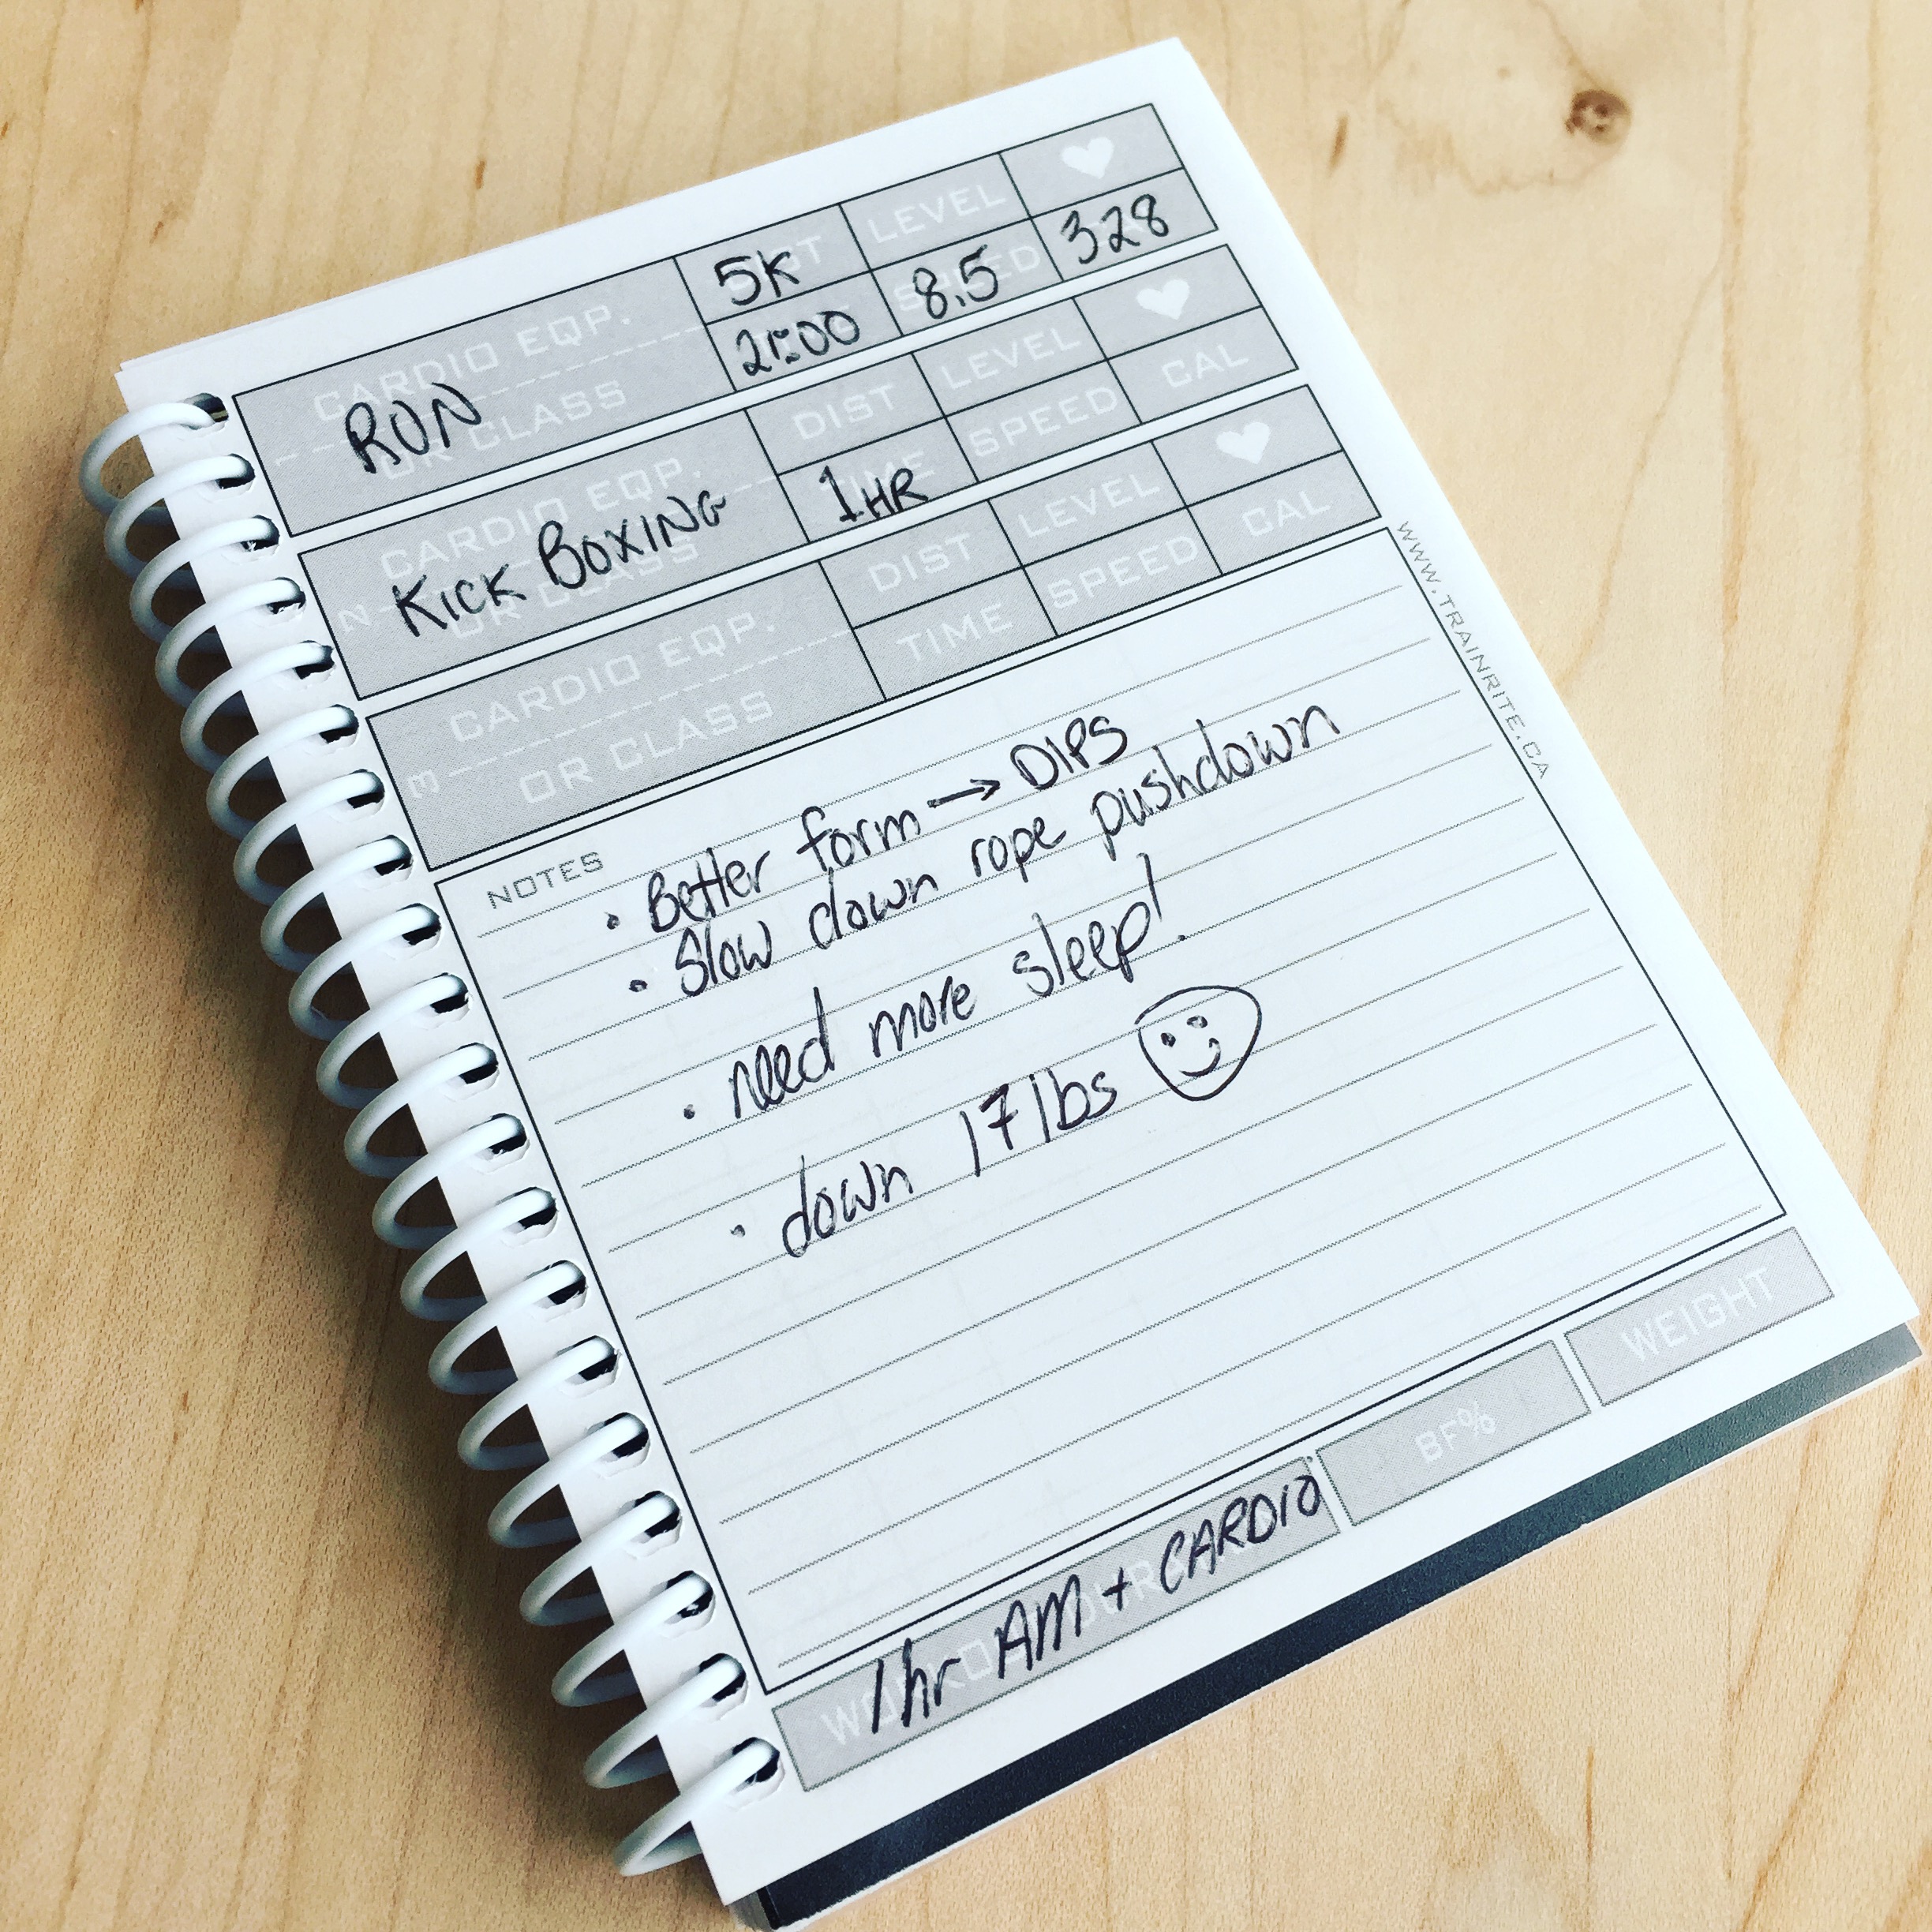 5K LEVEL
CARDIO EQP. 8.5 328
RUN
OR CLASS
DIST LEVEL
CARDIO EQP. 1HR SPEED CAL
KICK BOXING
OR CLASS
DIST LEVEL
CARDIO EQP. TIME SPEED CAL
OR CLASS
WWW.TRAINRITE.CA
NOTES
• Better form → DIPS
• Slow down rope pushdown
• need more sleep!
• down 17 lbs
1hr AM + CARDIO
BF%
WEIGHT